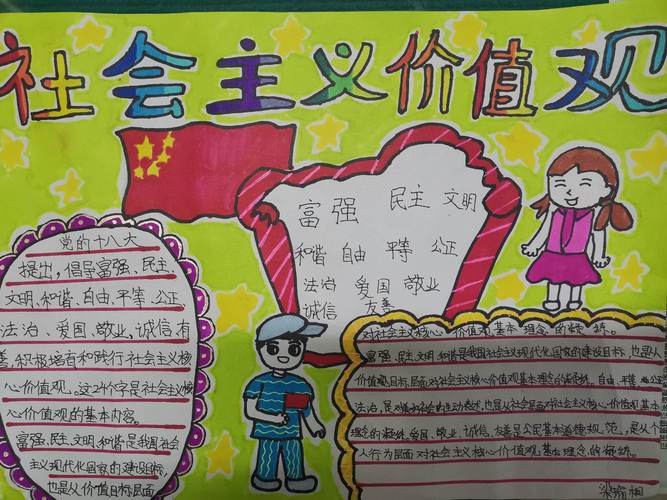 社会主义价值观
富强 民主 文明
和谐 自由 平等 公正
法治 爱国 敬业
诚信 友善
党的十八大
提出，倡导富强、民主
文明、和谐、自由、平等、公正
法治、爱国、敬业、诚信、友
善，积极培育和践行社会主义核
心价值观。这24个字是社会主义核
心价值观的基本内容。
富强、民主、文明、和谐是我国社会
主义现代化国家的建设目标，
也是从价值目标层面
对社会主义核心价值观基本理念的凝练。
富强、民主、文明、和谐是我国社会主义现代化国家的建设目标，也是从
价值目标层面对社会主义核心价值观基本理念的凝练。自由、平等、公
法治，是对美好社会的生动表述，也是从社会层面对社会主义核心价值观基本
理念的凝练。爱国、敬业、诚信、友善是公民基本道德规范，是从个
人行为层面对社会主义核心价值观基本理念的凝练。